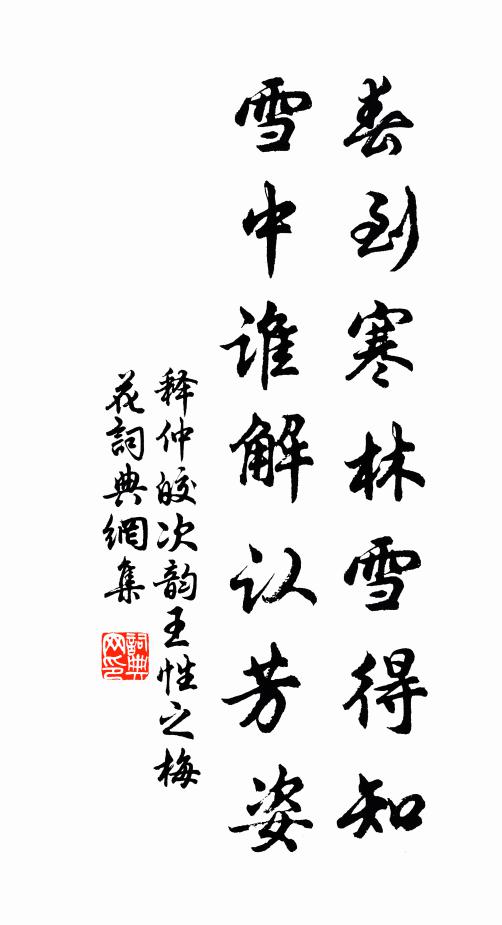 春到寒林雪得知
雪中谁解认芳姿
释仲皎次韵王性之梅
花詞典網集
詞典
网印